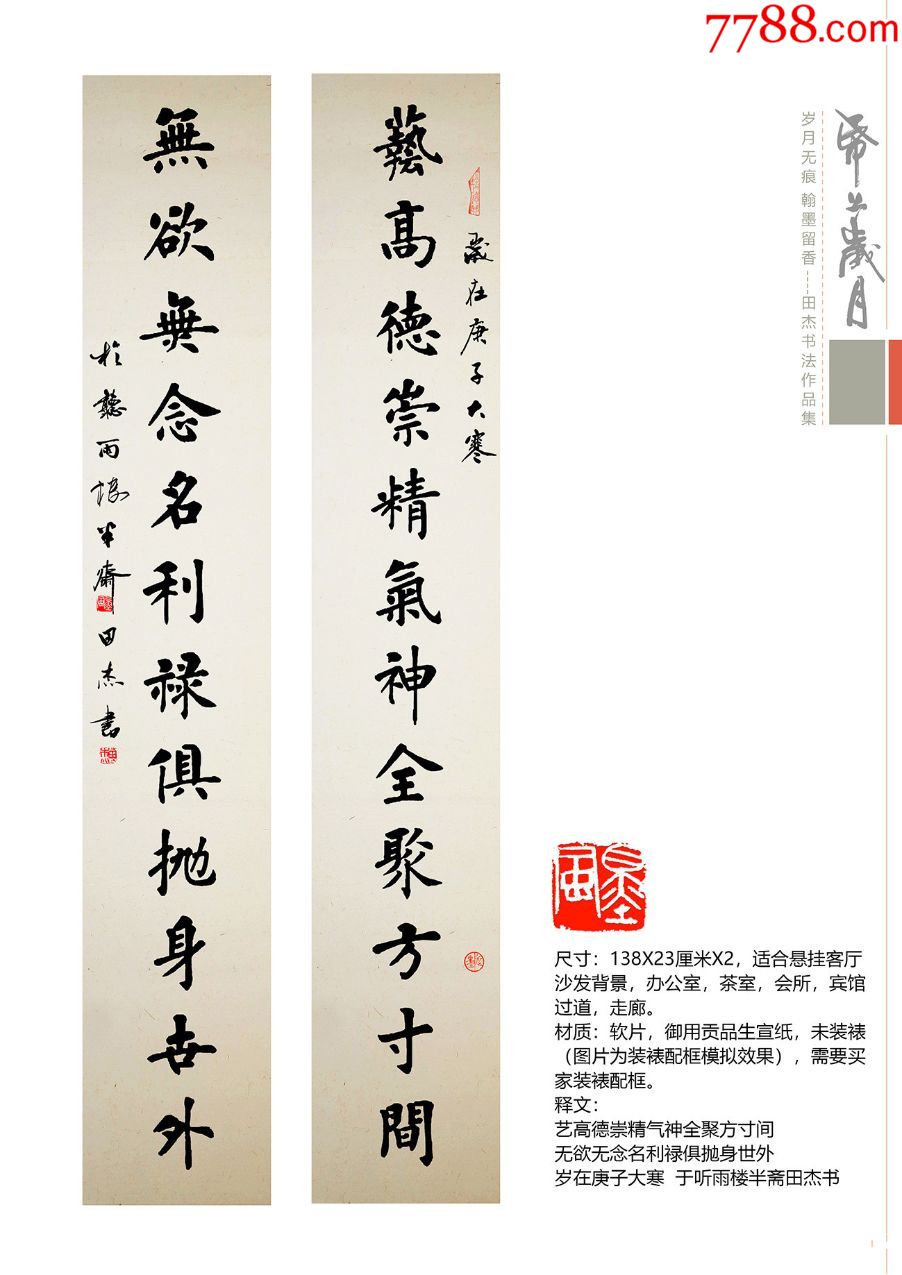 7788.com
紙上歲月
岁月无痕 翰墨留香-----田杰书法作品集
歲在庚子大寒
藝高德崇精氣神全聚方寸間
無欲無念名利祿俱抛身世外
於聽雨楼半齋田杰書
墨
尺寸：138X23厘米X2，适合悬挂客厅
沙发背景，办公室，茶室，会所，宾馆
过道，走廊。
材质：软片，御用贡品生宣纸，未装裱
（图片为装裱配框模拟效果），需要买
家装裱配框。
释文：
艺高德崇精气神全聚方寸间
无欲无念名利禄俱抛身世外
岁在庚子大寒 于听雨楼半斋田杰书
1